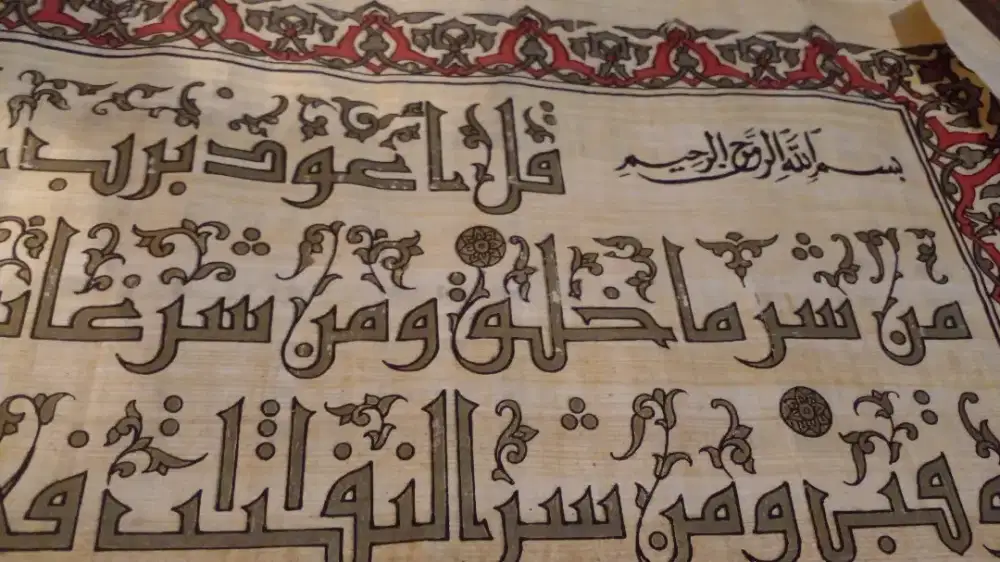 بسم الله الرحمن الرحيم قل أعوذ برب
من شر ما خلق ومن شر
وقب ومن شر النفٰثٰت